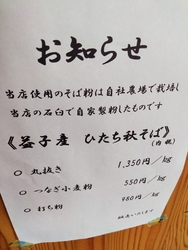 お知らせ
当店使用のそば粉は自社農場で栽培し
当店の石臼で自家製粉したものです
《益子産 ひたち秋そば》(内税)
○ 丸抜き 1,350円/kg
○ つなぎ小麦粉 550円/kg
○ 打ち粉 980円/kg